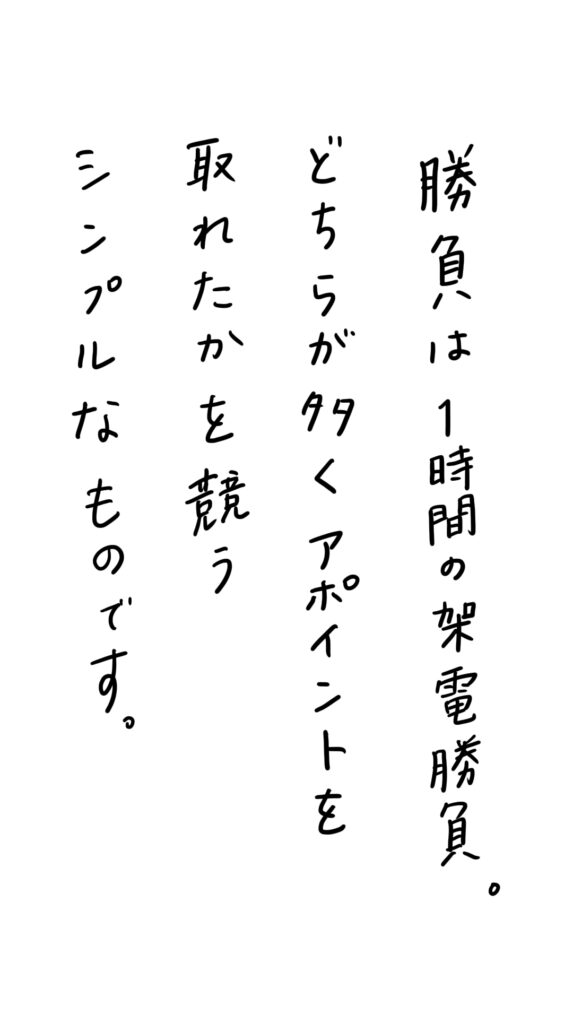 勝負は1時間の架電勝負。
どちらが多くアポイントを
取れたかを競う
シンプルなものです。